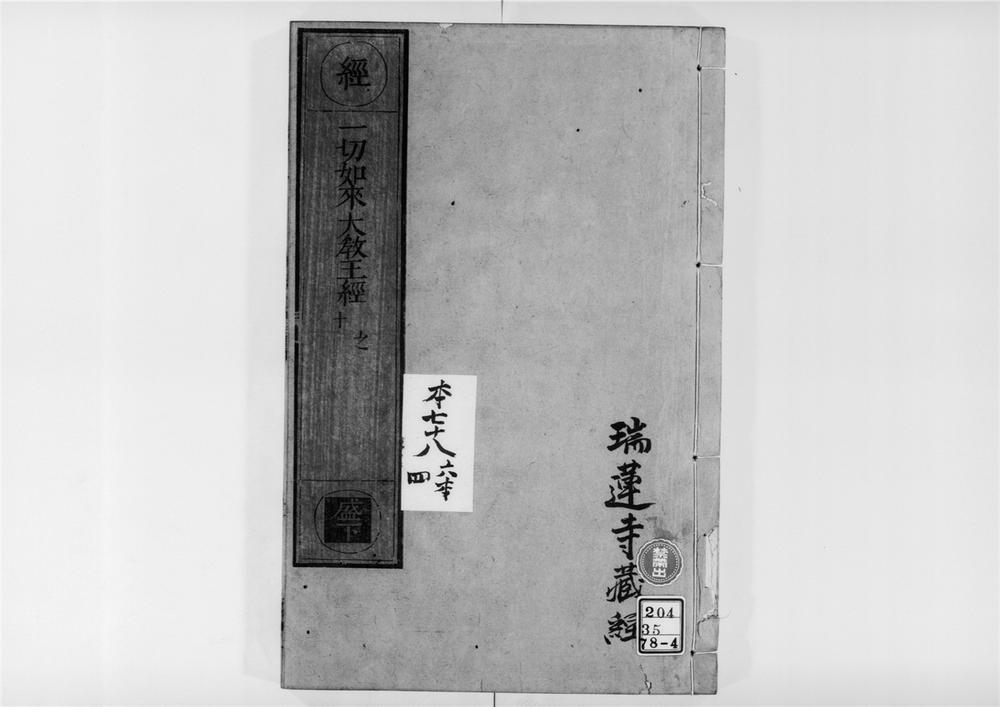 瑞蓮寺藏經
禁帶出
204
35
78-4
本七十八
六本
四
經
一切如來大教王經
十之
盛下